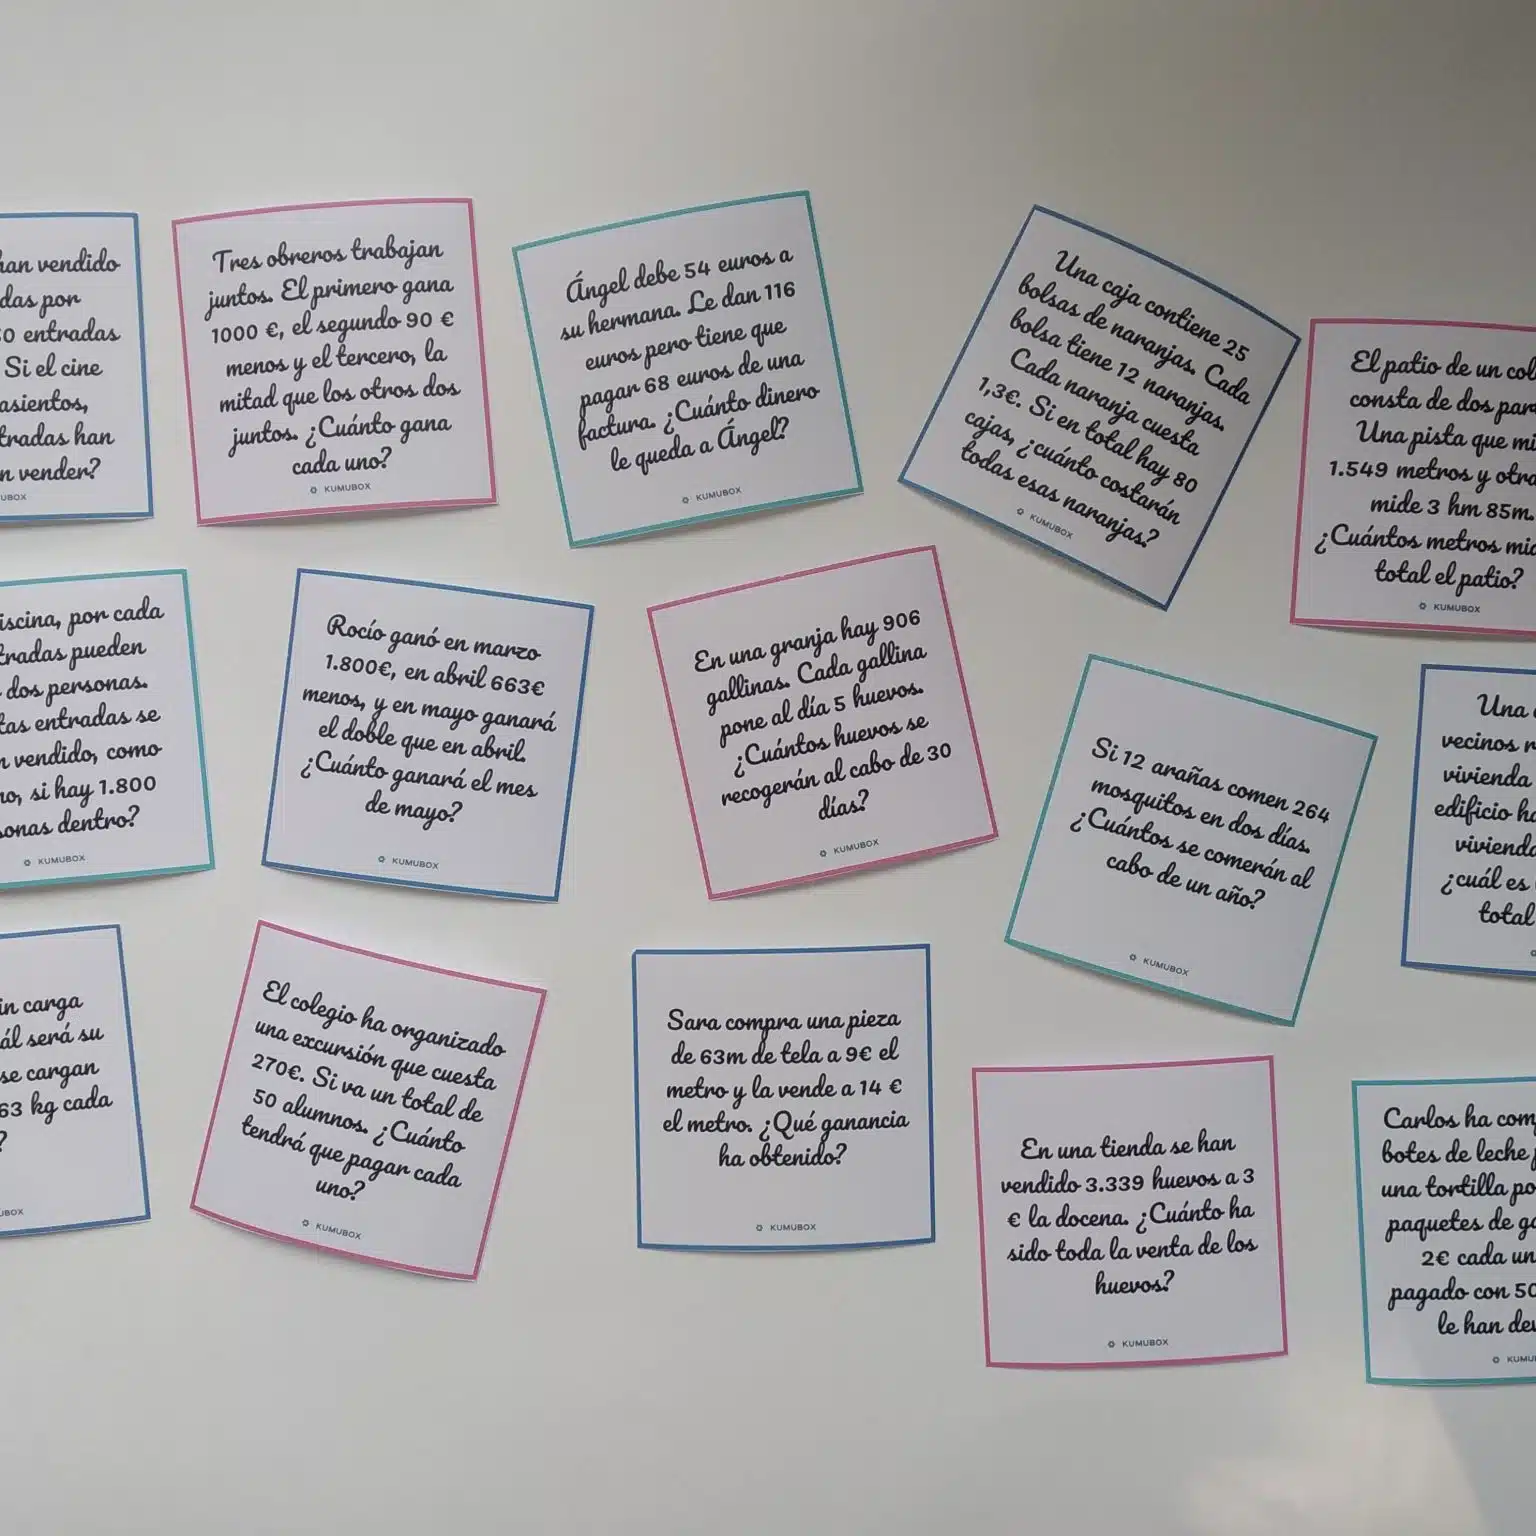 han vendido
das por
entradas
Si el cine
asientos,
tradas han
n vender?
UBOX
Tres obreros trabajan
juntos. El primero gana
1000 €, el segundo 90 €
menos y el tercero, la
mitad que los otros dos
juntos. ¿Cuánto gana
cada uno?
KUMUBOX
Ángel debe 54 euros a
su hermana. Le dan 116
euros pero tiene que
pagar 68 euros de una
factura. ¿Cuánto dinero
le queda a Ángel?
KUMUBOX
Una caja contiene 25
bolsas de naranjas. Cada
bolsa tiene 12 naranjas.
Cada naranja cuesta
1,3€. Si en total hay 80
cajas, ¿cuánto costarán
todas esas naranjas?
KUMUBOX
El patio de un col
consta de dos par
Una pista que mi
1.549 metros y otra
mide 3 hm 85m.
¿Cuántos metros mi
total el patio?
KUMUBOX
iscina, por cada
tradas pueden
dos personas.
tas entradas se
n vendido, como
no, si hay 1.800
sonas dentro?
KUMUBOX
Rocío ganó en marzo
1.800€, en abril 663€
menos, y en mayo ganará
el doble que en abril.
¿Cuánto ganará el mes
de mayo?
KUMUBOX
En una granja hay 906
gallinas. Cada gallina
pone al día 5 huevos.
¿Cuántos huevos se
recogerán al cabo de 30
días?
KUMUBOX
Si 12 arañas comen 264
mosquitos en dos días.
¿Cuántos se comerán al
cabo de un año?
KUMUBOX
Una
vecinos
vivienda
edificio ha
viviend
¿cuál es
total
in carga
ál será su
se cargan
63 kg cada
?
UBOX
El colegio ha organizado
una excursión que cuesta
270€. Si va un total de
50 alumnos. ¿Cuánto
tendrá que pagar cada
uno?
KUMUBOX
Sara compra una pieza
de 63m de tela a 9€ el
metro y la vende a 14 €
el metro. ¿Qué ganancia
ha obtenido?
KUMUBOX
En una tienda se han
vendido 3.339 huevos a 3
€ la docena. ¿Cuánto ha
sido toda la venta de los
huevos?
KUMUBOX
Carlos ha com
botes de leche
una tortilla po
paquetes de ga
2€ cada un
pagado con 50
le han de
KUMU